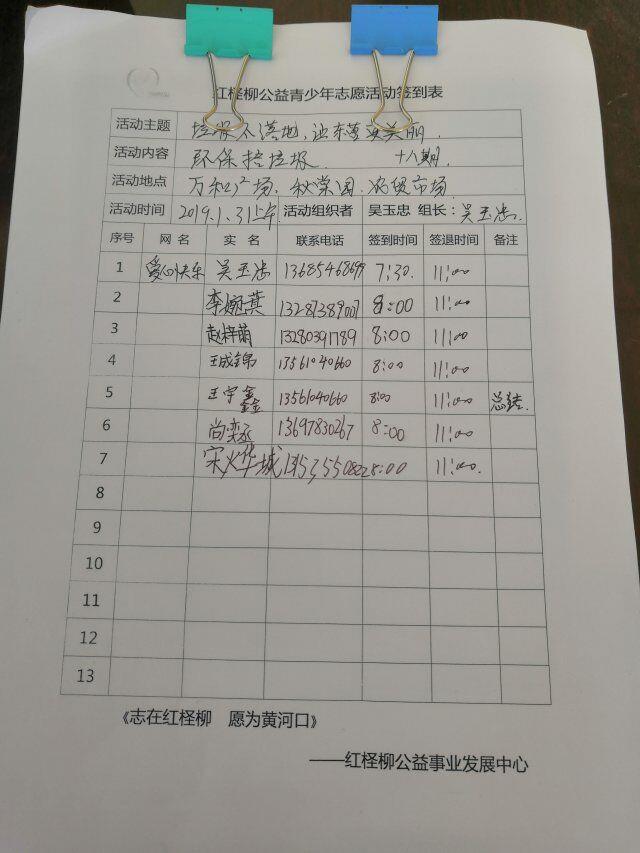 红柽柳公益青少年志愿活动签到表
活动主题 垃圾不落地,让东营更美丽.
活动内容 环保捡垃圾. 十八期.
活动地点 万和广场、秋棠园、农贸市场
活动时间 2019.1.31上午 活动组织者 吴玉忠 组长:吴玉忠.
序号 网名 实名 联系电话 签到时间 签退时间 备注
1 爱心快乐 吴玉忠 7:30. 11:00
2 13287389007 8:00 11:00
3 赵梓萌 13280391789 8:00 11:00
4 王成锦 13561040660 8:00 11:00
5 王宇鑫 13561040660 8:00 11:00 总结.
6 尚奕丞 13697830267 8:00 11:00
7 8:00 11:00.
8
9
10
11
12
13
《志在红柽柳 愿为黄河口》
——红柽柳公益事业发展中心